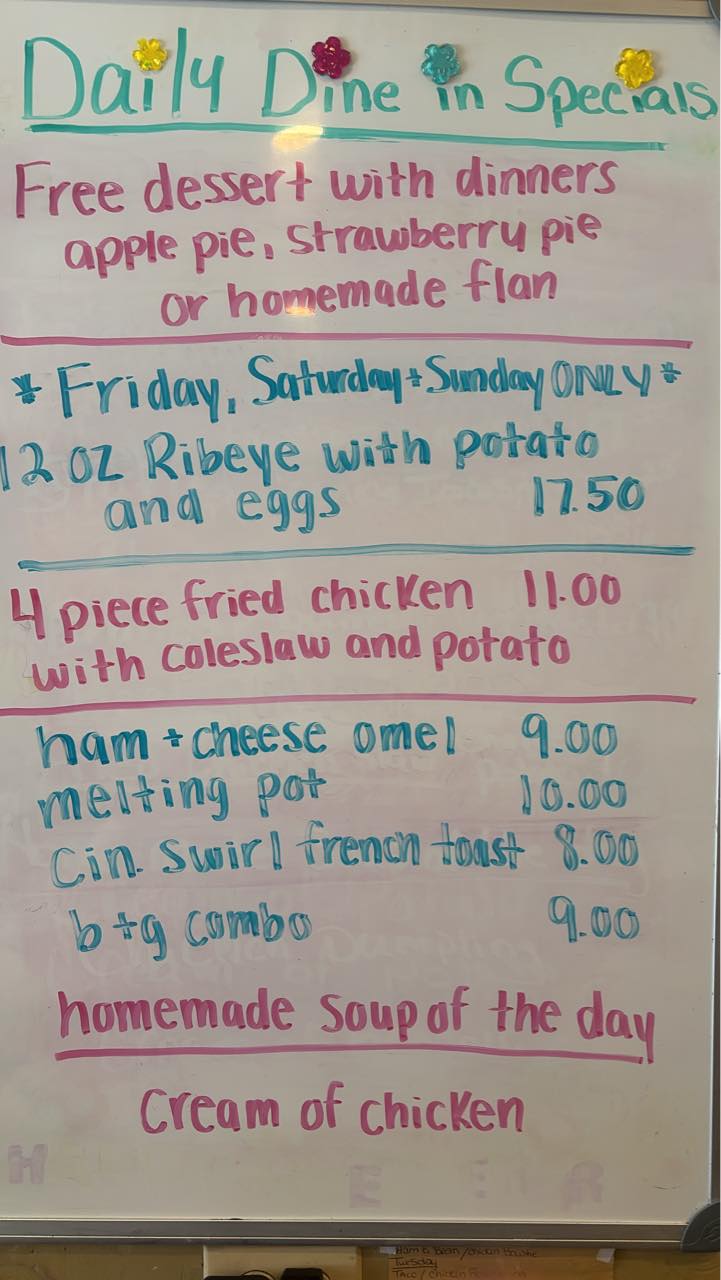 Daily Dine in Specials
Free dessert with dinners
apple pie, strawberry pie
or homemade flan
* Friday, Saturday + Sunday ONLY *
12 oz Ribeye with potato
and eggs 17.50
4 piece fried chicken 11.00
with coleslaw and potato
ham + cheese omel 9.00
melting pot 10.00
Cin. swirl french toast 8.00
b+g combo 9.00
homemade soup of the day
Cream of chicken
Tuesday